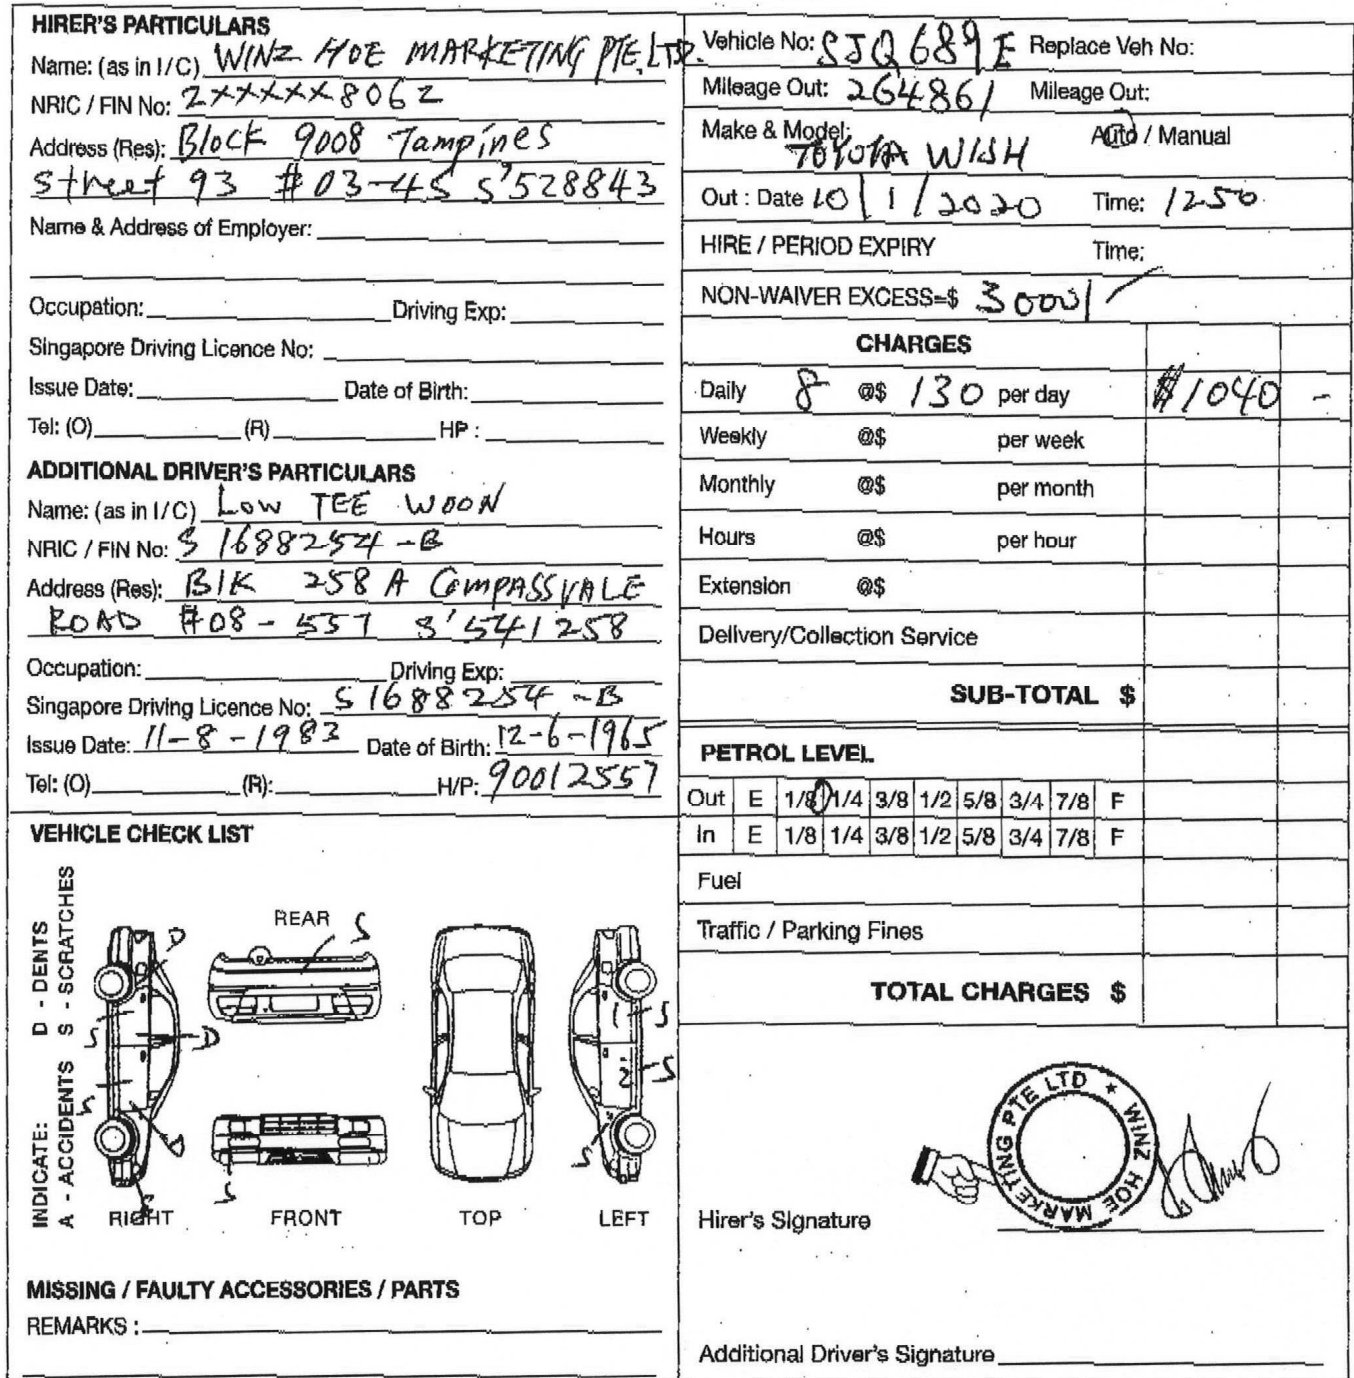 HIRER'S PARTICULARS
Name: (as in I/C) WINZ HOE MARKETING PTE. LTD.
NRIC / FIN No: 2XXXXXX806Z
Address (Res): Block 9008 Tampines
Street 93 #03-45 S'528843
Name & Address of Employer:
Occupation: Driving Exp:
Singapore Driving Licence No:
Issue Date: Date of Birth:
Tel: (O) (R) HP :
ADDITIONAL DRIVER'S PARTICULARS
Name: (as in I/C) LOW TEE WOON
NRIC / FIN No: S 1688254-B
Address (Res): BlK 258 A COMPASSVALE
ROAD #08-557 S'541258
Occupation: Driving Exp:
Singapore Driving Licence No: S 1688254-B
Issue Date: 11-8-1983 Date of Birth: 12-6-1965
Tel: (O) (R): H/P: 90012557
VEHICLE CHECK LIST
INDICATE: D - DENTS
A - ACCIDENTS S - SCRATCHES
REAR S
D
S
D
S
D
S
S
S
1
2
S
S
RIGHT FRONT TOP LEFT
MISSING / FAULTY ACCESSORIES / PARTS
REMARKS :
Vehicle No: SJQ 689 E Replace Veh No:
Mileage Out: 264861 Mileage Out:
Make & Model: TOYOTA WISH Auto / Manual
Out : Date 10/1/2020 Time: 1250
HIRE / PERIOD EXPIRY Time:
NON-WAIVER EXCESS=$ 3000/
CHARGES
Daily 8 @$ 130 per day $1040 -
Weekly @$ per week
Monthly @$ per month
Hours @$ per hour
Extension @$
Delivery/Collection Service
SUB-TOTAL $
PETROL LEVEL
Out E 1/8 1/4 3/8 1/2 5/8 3/4 7/8 F
In E 1/8 1/4 3/8 1/2 5/8 3/4 7/8 F
Fuel
Traffic / Parking Fines
TOTAL CHARGES $
WINZ HOE MARKETING PTE LTD ★
Hirer's Signature
Additional Driver's Signature